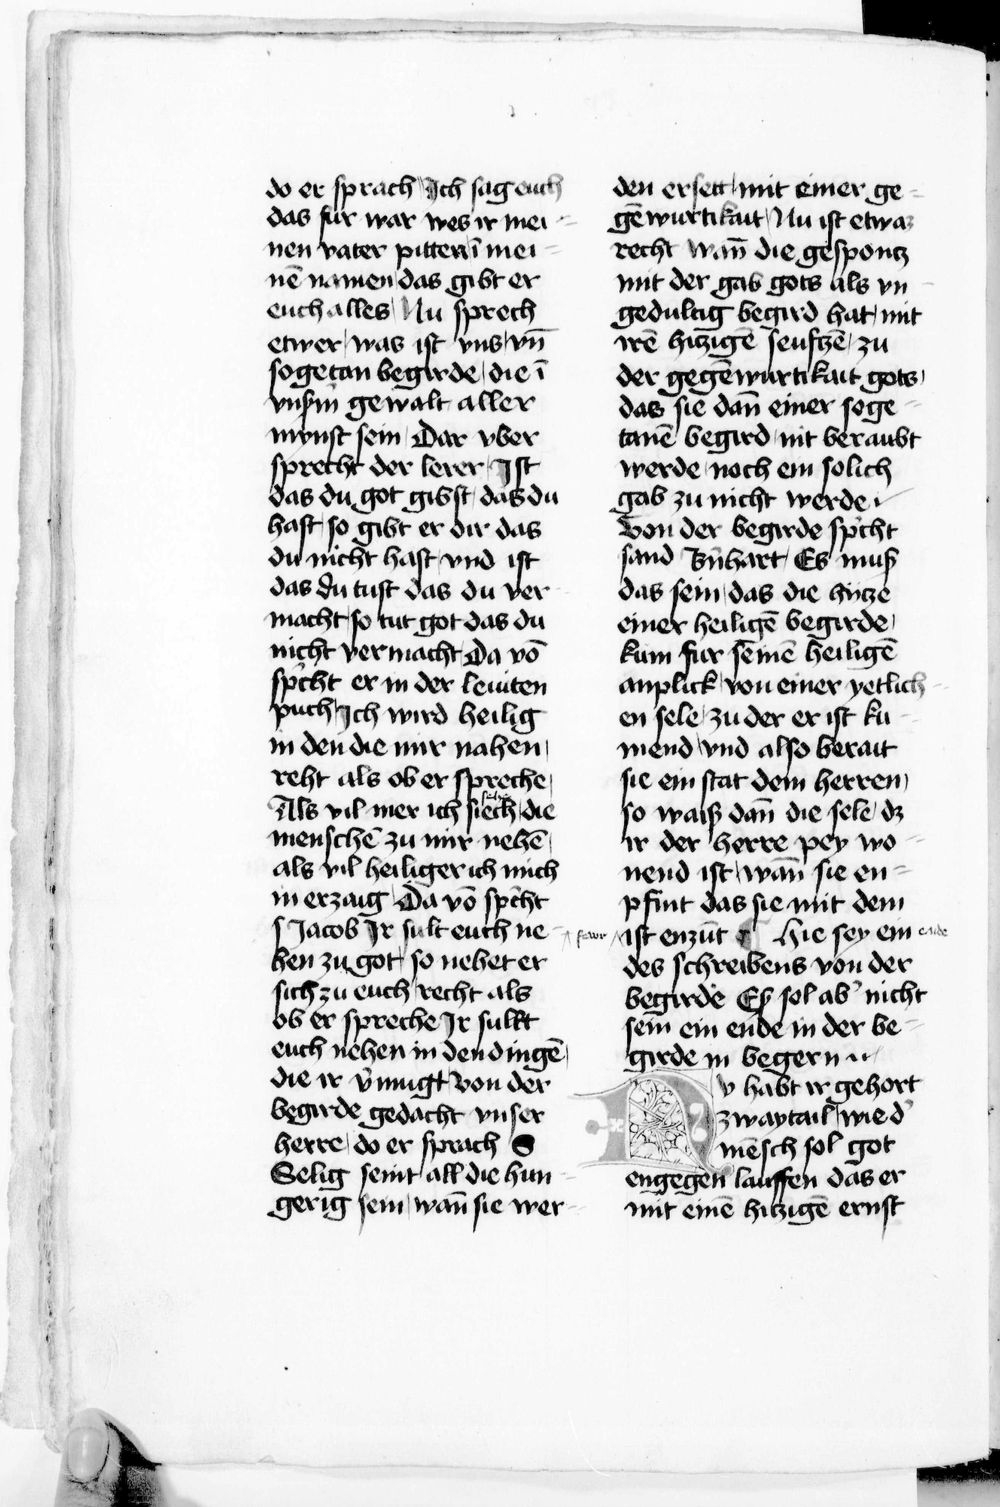 do er sprach Ich sag euch
das fur war wes ir mei-
nen vater pitten ī mei-
nē namen das gibt er
euch alles Nu sprech
etwer was ist vns vn̄
sogetan begirde die ī
vnsm̄ gewalt aller
mynst sein Dar vber
sprecht der lerer Ist
das du got gibst das du
hast so gibt er dir das
du nicht hast vnd ist
das du tust das du ver
macht so tut got das du
nicht vermacht Da vō
sp̄cht er in der leuiten
puch Ich wird heilig
in den die mir nahen
reht als ob er spreche
Als vil mer ich siech die
menschē zu mir nehē
als vil heiliger ich mich
in erzaig Da vō sp̄cht
s Jacob Ir sult euch ne-
hen zu got so nehet er
sich zu euch recht als
ob er spreche Ir sullt
euch nehen in den dingē
die ir v̄mugt Von der
begirde gedacht vnser
herre do er sprach S
Selig seint all die hun-
gerig sein wan̄ sie wer-
den ersett mit einer ge-
gēwurtikait Nu ist etwaz
recht wan̄ die gespontz
mit der gab gots als vn
gedultig begird hat mit
irē hitzigē seuftzē zu
der gegēwurtikait gots
das sie dan̄ einer soge-
tanē begird nit beraubt
werde noch ein solich
gab zu nicht werde
Von der begirde sp̄cht
sand Bn̄hart Es muß
das sein das die hytze
einer heiligē begirde
kum fur seinē heiligē
anplick von einer yetlich-
en sele zu der er ist ku-
mend vnd also berait
sie ein stat dem herren
so waiß dan̄ die sele dz
ir der herre pey wo-
nend ist wan̄ sie en-
pfint das sie mit dem
fewr ist enzūt Hie sey ein ende
des schreibens von der
begirde Eß sol ab' nicht
sein ein ende in der be-
girde in begern
Nv habt ir gehort
zwaytail wie d'
mēsch sol got
engegen lauffen das er
mit einē hitzigē ernst